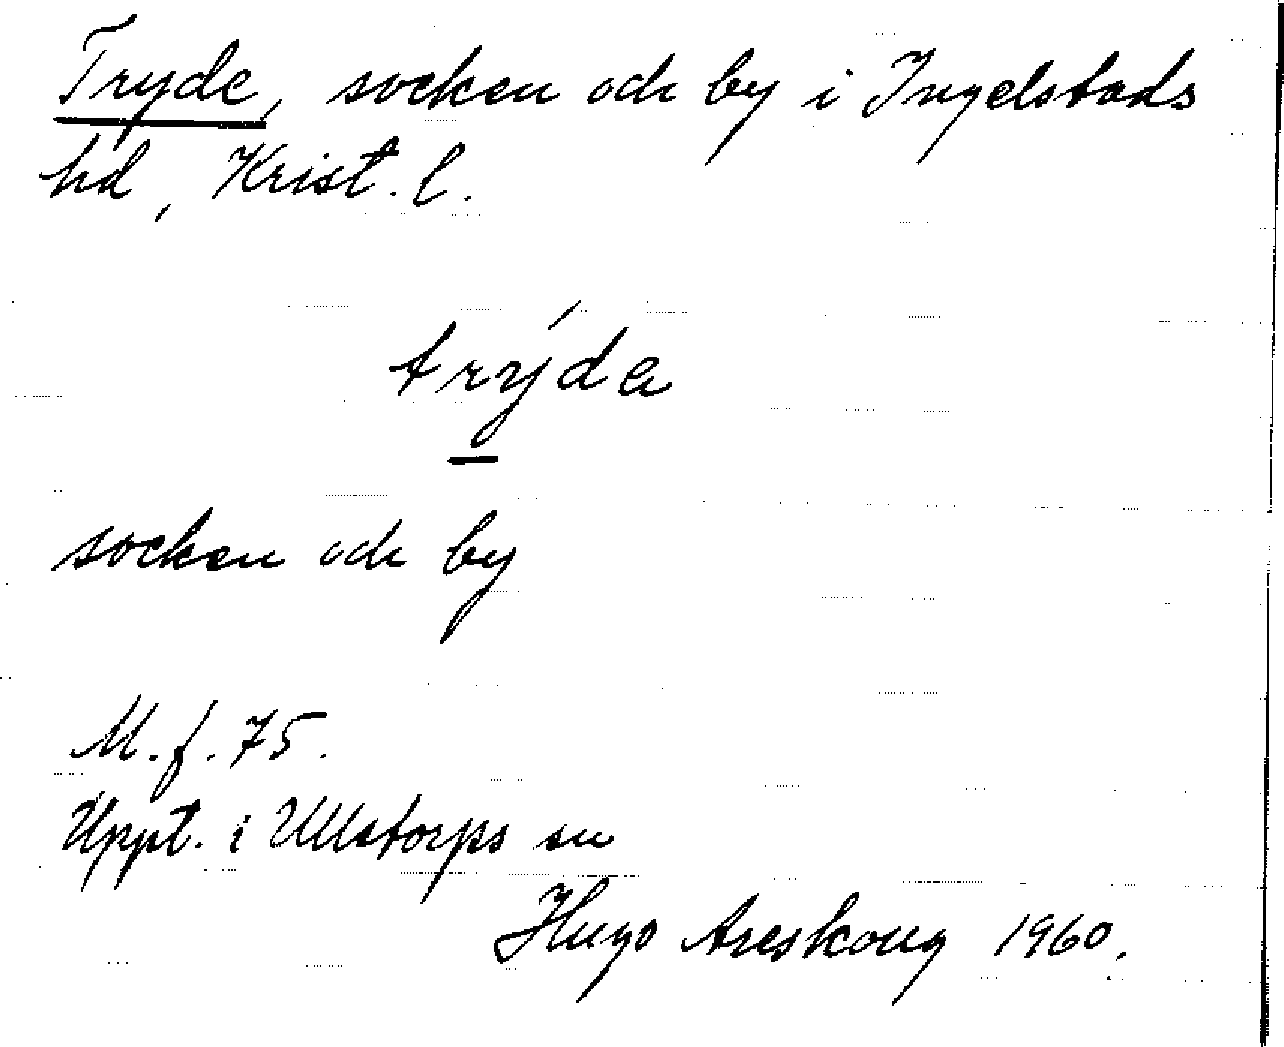 Tryde, socken och by i Ingelstads
hd, Krist. l.
trýda
socken och by
M. f. 75.
Uppt. i Ullstorps sn
Hugo Areskoug 1960.